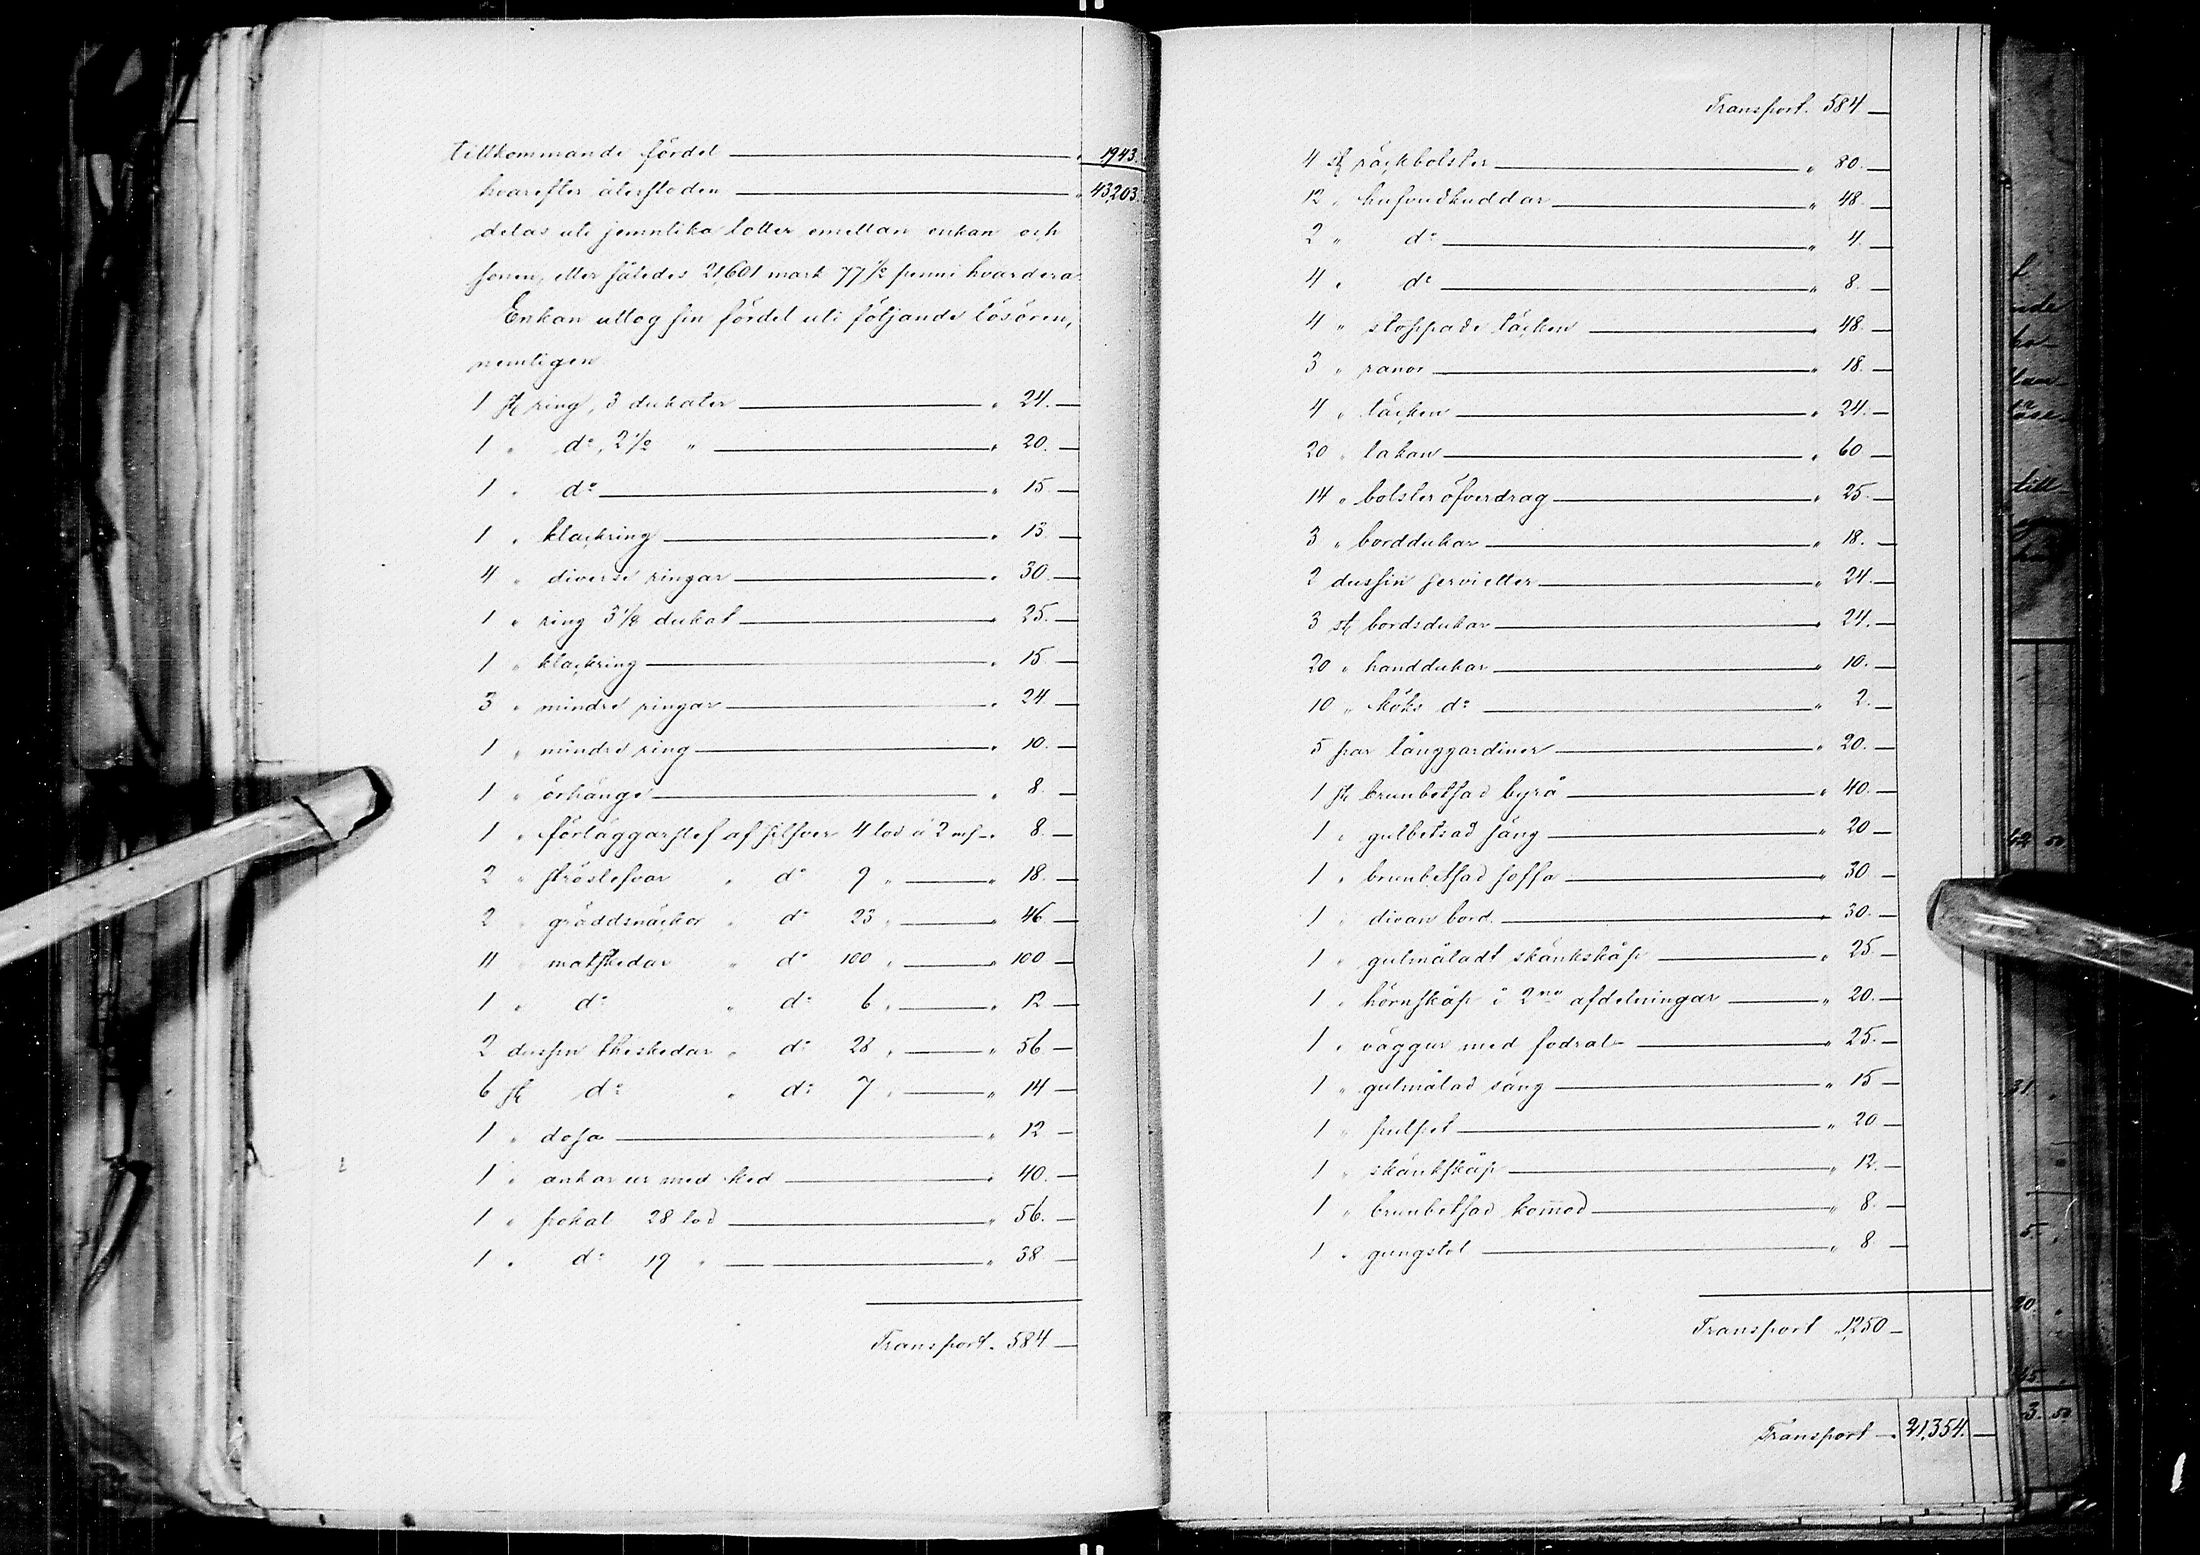 tillkommande fördel — " 1943.
hvarefter återstoden — " 43,203.
delas uti jemnlika lotter emellan enkan och
sonen, eller således 21,601 mark 77 1/2 penni hvardera
Enkan uttog sin fördel uti följande lösören,
nemligen
1 st ring, 3 dukater — " 24. —
1 " d:o, 2 1/2 " — " 20. —
1 " d:o — " 15 —
1 " klackring — " 13. —
4 " diverse ringar — " 30. —
1 " ring 3 1/2 dukat — " 25. —
1 " klackring — " 15 —
3 " mindre ringar — " 24 —
1 " mindre ring — " 10. —
1 " örhänge — " 8. —
1 " förläggarslef af silfver 4 lod à 2 mk — " 8. —
2 " ströslefvar " d:o 9 " — " 18. —
2 " gräddsnäckor " d:o 23 " — " 46. —
11 " matskedar " d:o 100 " — " 100 —
1 " d:o " d:o 6 " — " 12 —
2 dussin theskedar " d:o 28 " — " 56 —
6 st d:o " d:o 7 " — " 14 —
1 " dosa — " 12 —
1 " ankar ur med ked — " 40. —
1 " pokal 28 lod — " 56. —
1 " d:o 19 " — " 38. —
Transport " 584 —
Transport " 584 —
4 st räckbolster — " 80. —
12 " hufvudkuddar — " 48. —
2 " d:o — " 4. —
4 " d:o — " 8. —
4 " stoppade täcken — " 48. —
3 " ranor — " 18. —
4 " täcken — " 24. —
20 " lakan — " 60. —
14 " bolsteröfverdrag — " 25. —
3 " borddukar — " 18. —
2 dussin servietter — " 24. —
3 st bordsdukar — " 24. —
20 " handdukar — " 10. —
10 " köks d:o — " 2. —
5 par långgardiner — " 20. —
1 st brunbetsad byrå — " 40. —
1 " gulbetsad säng — " 20 —
1 " brunbetsad soffa — " 30. —
1 " divan bord — " 30. —
1 " gulmåladt skänkskåp — " 25. —
1 " hörnskåp i 2ne afdelningar — " 20. —
1 " väggur med fodral — " 25. —
1 " gulmålad säng — " 15 —
1 " pulpet — " 20 —
1 " skänkskåp — " 12. —
1 " brunbetsad komod — " 8. —
1 " gungstol — " 8 —
Transport " 1,250 —
Transport — " 21,354. —